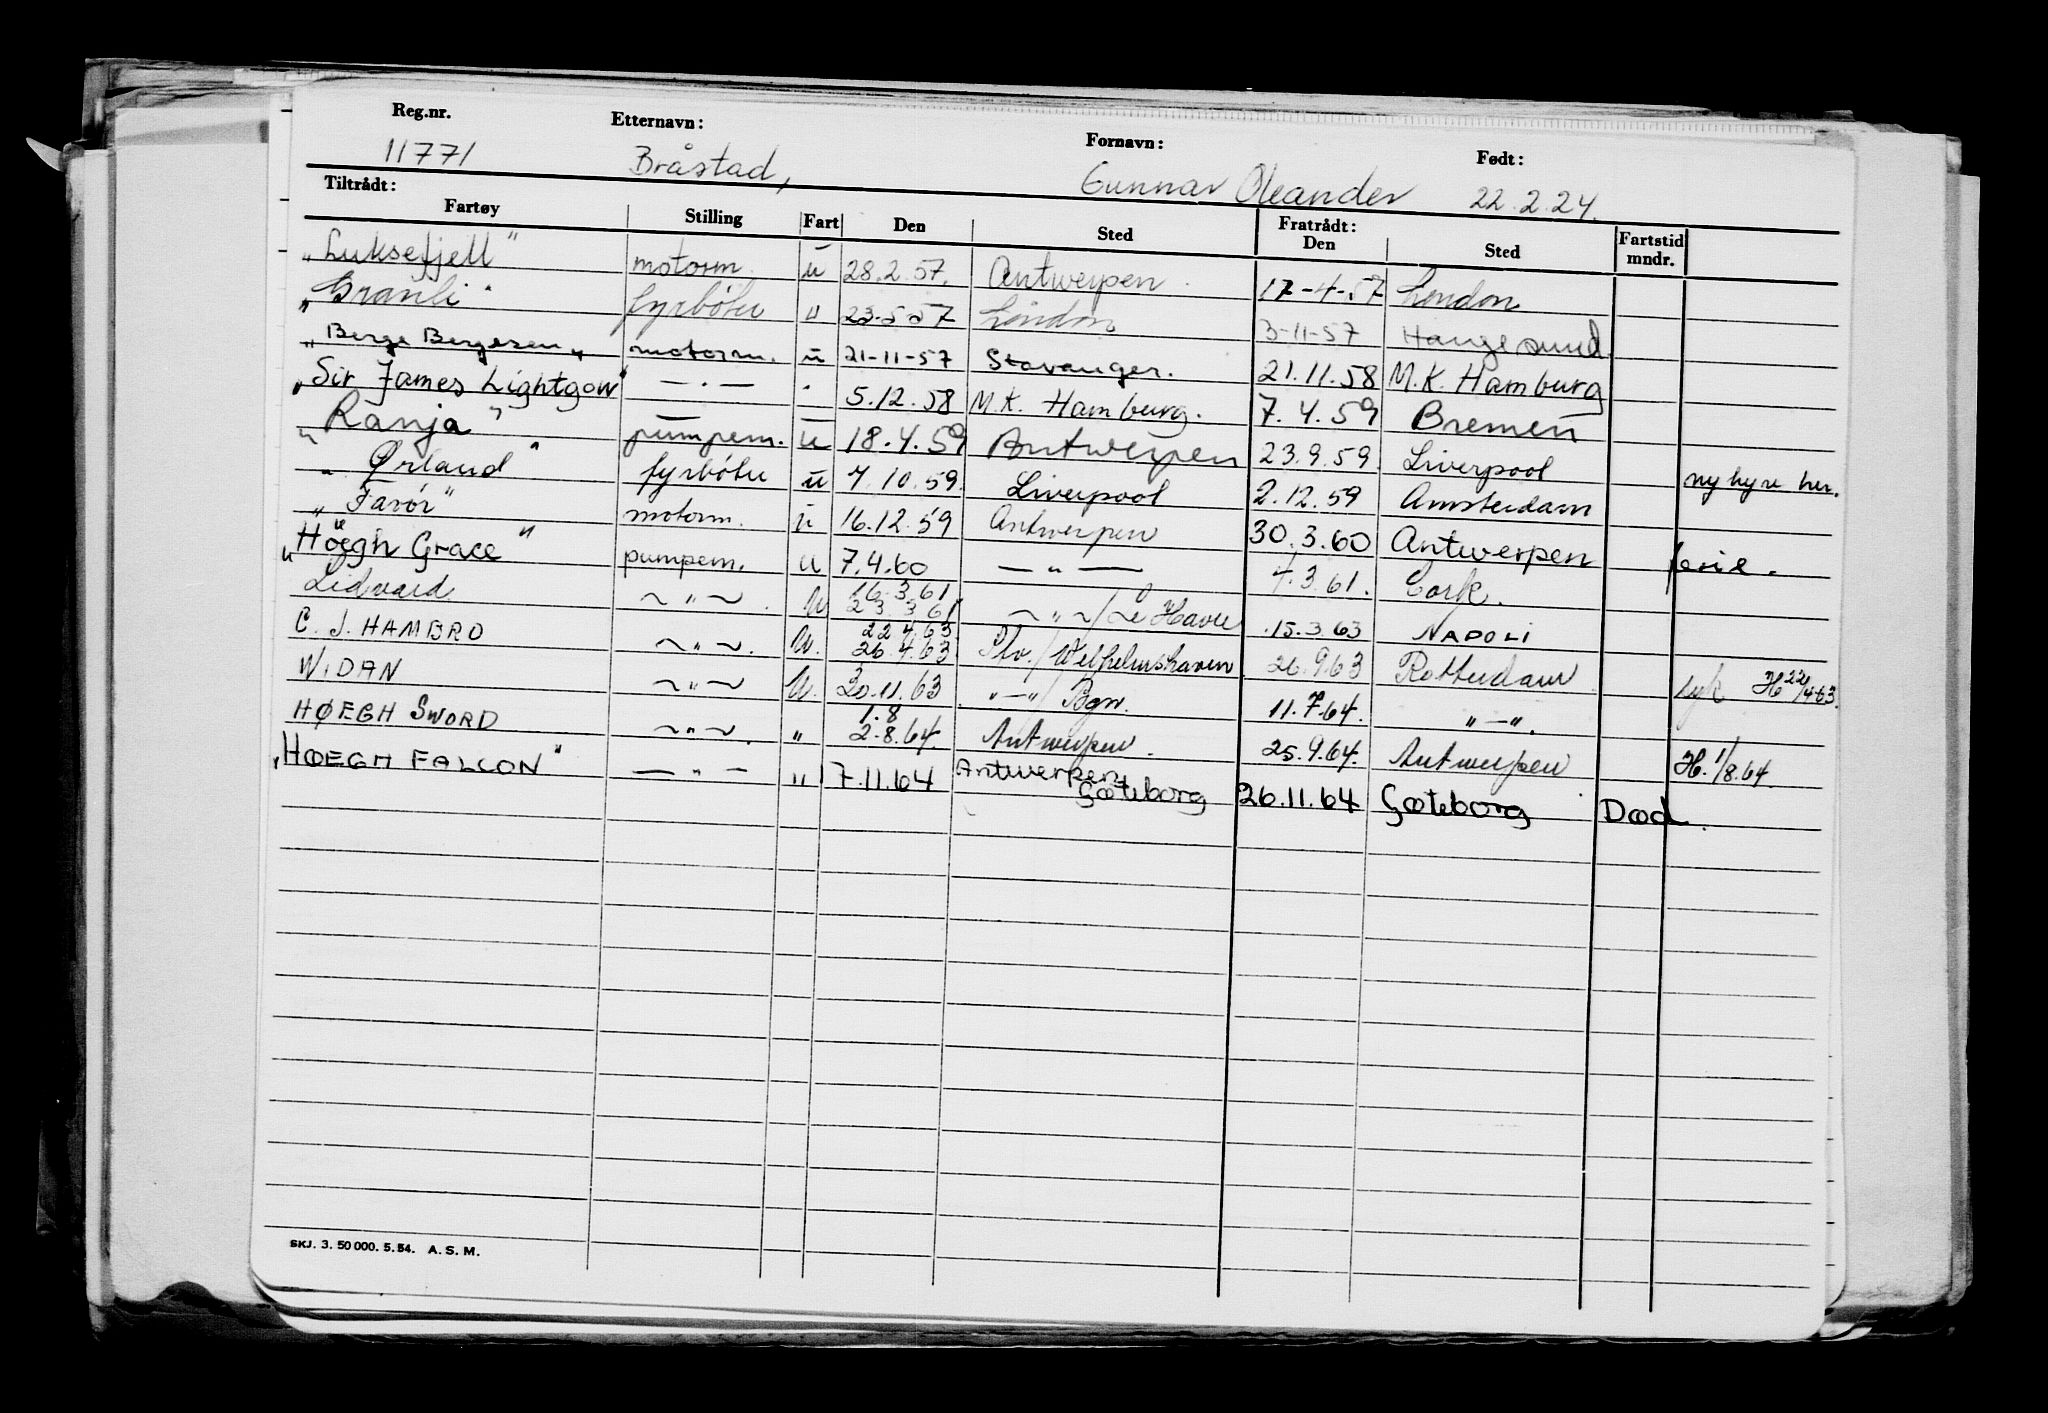 Reg.nr. Etternavn: Fornavn: Født:
11771 Bråstad, Gunnar Oleander 22.2.24.
Tiltrådt: Fratrådt:
Fartøy Stilling Fart Den Sted Den Sted Fartstid mndr.
"Luksefjell" motorm. u 28.2.57. Antwerpen 17-4-57 London
"Granli" fyrbøter " 23.5.57 London 3-11-57 Haugesund.
"Berge Bergesen" motorm. u 21-11-57 Stavanger. 21.11.58 M.K. Hamburg
"Sir James Lightgow" — . — 5.12.58 M.K. Hamburg. 7.4.59 Bremen
"Ranja" pumpem. u 18.4.59 Antwerpen 23.9.59 Liverpool ny hyre her.
"Ørland" fyrbøter u 7.10.59. Liverpool 2.12.59 Amsterdam
"Farör" motorm. u 16.12.59 Antwerpen 30.3.60 Antwerpen ferie.
"Höegh Grace" pumpem. u 7.4.60 — " — 4.3.61. Cork.
Lidvard ~ " ~ U 16.3.61 23.3.61 ~ " ~/Le Havre 15.3.63 NAPOLI
C. J. HAMBRO ~ " ~. U. 22.4.63 26.4.63 /Wilhelmshaven 26.9.63 Rotterdam syk H 22/4-63.
WIDAN ~ " ~ U. 30.11.63 "—"/Bgn. 11.7.64. "—".
HØEGH SWORD ~ " ~. " 1.8 2.8.64. Antwerpen. 25.9.64. Antwerpen H. 1/8.64.
"HØEGH FALCON" — " — " 17.11.64 Antwerpen Gøteborg 26.11.64 Gøteborg Død.
SKJ. 3. 50 000. 5.54. A. S. M.